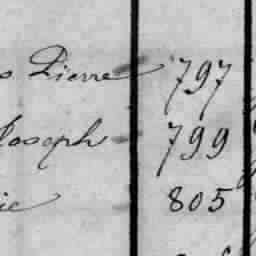 s Pierre 797
Joseph 799
ie 805